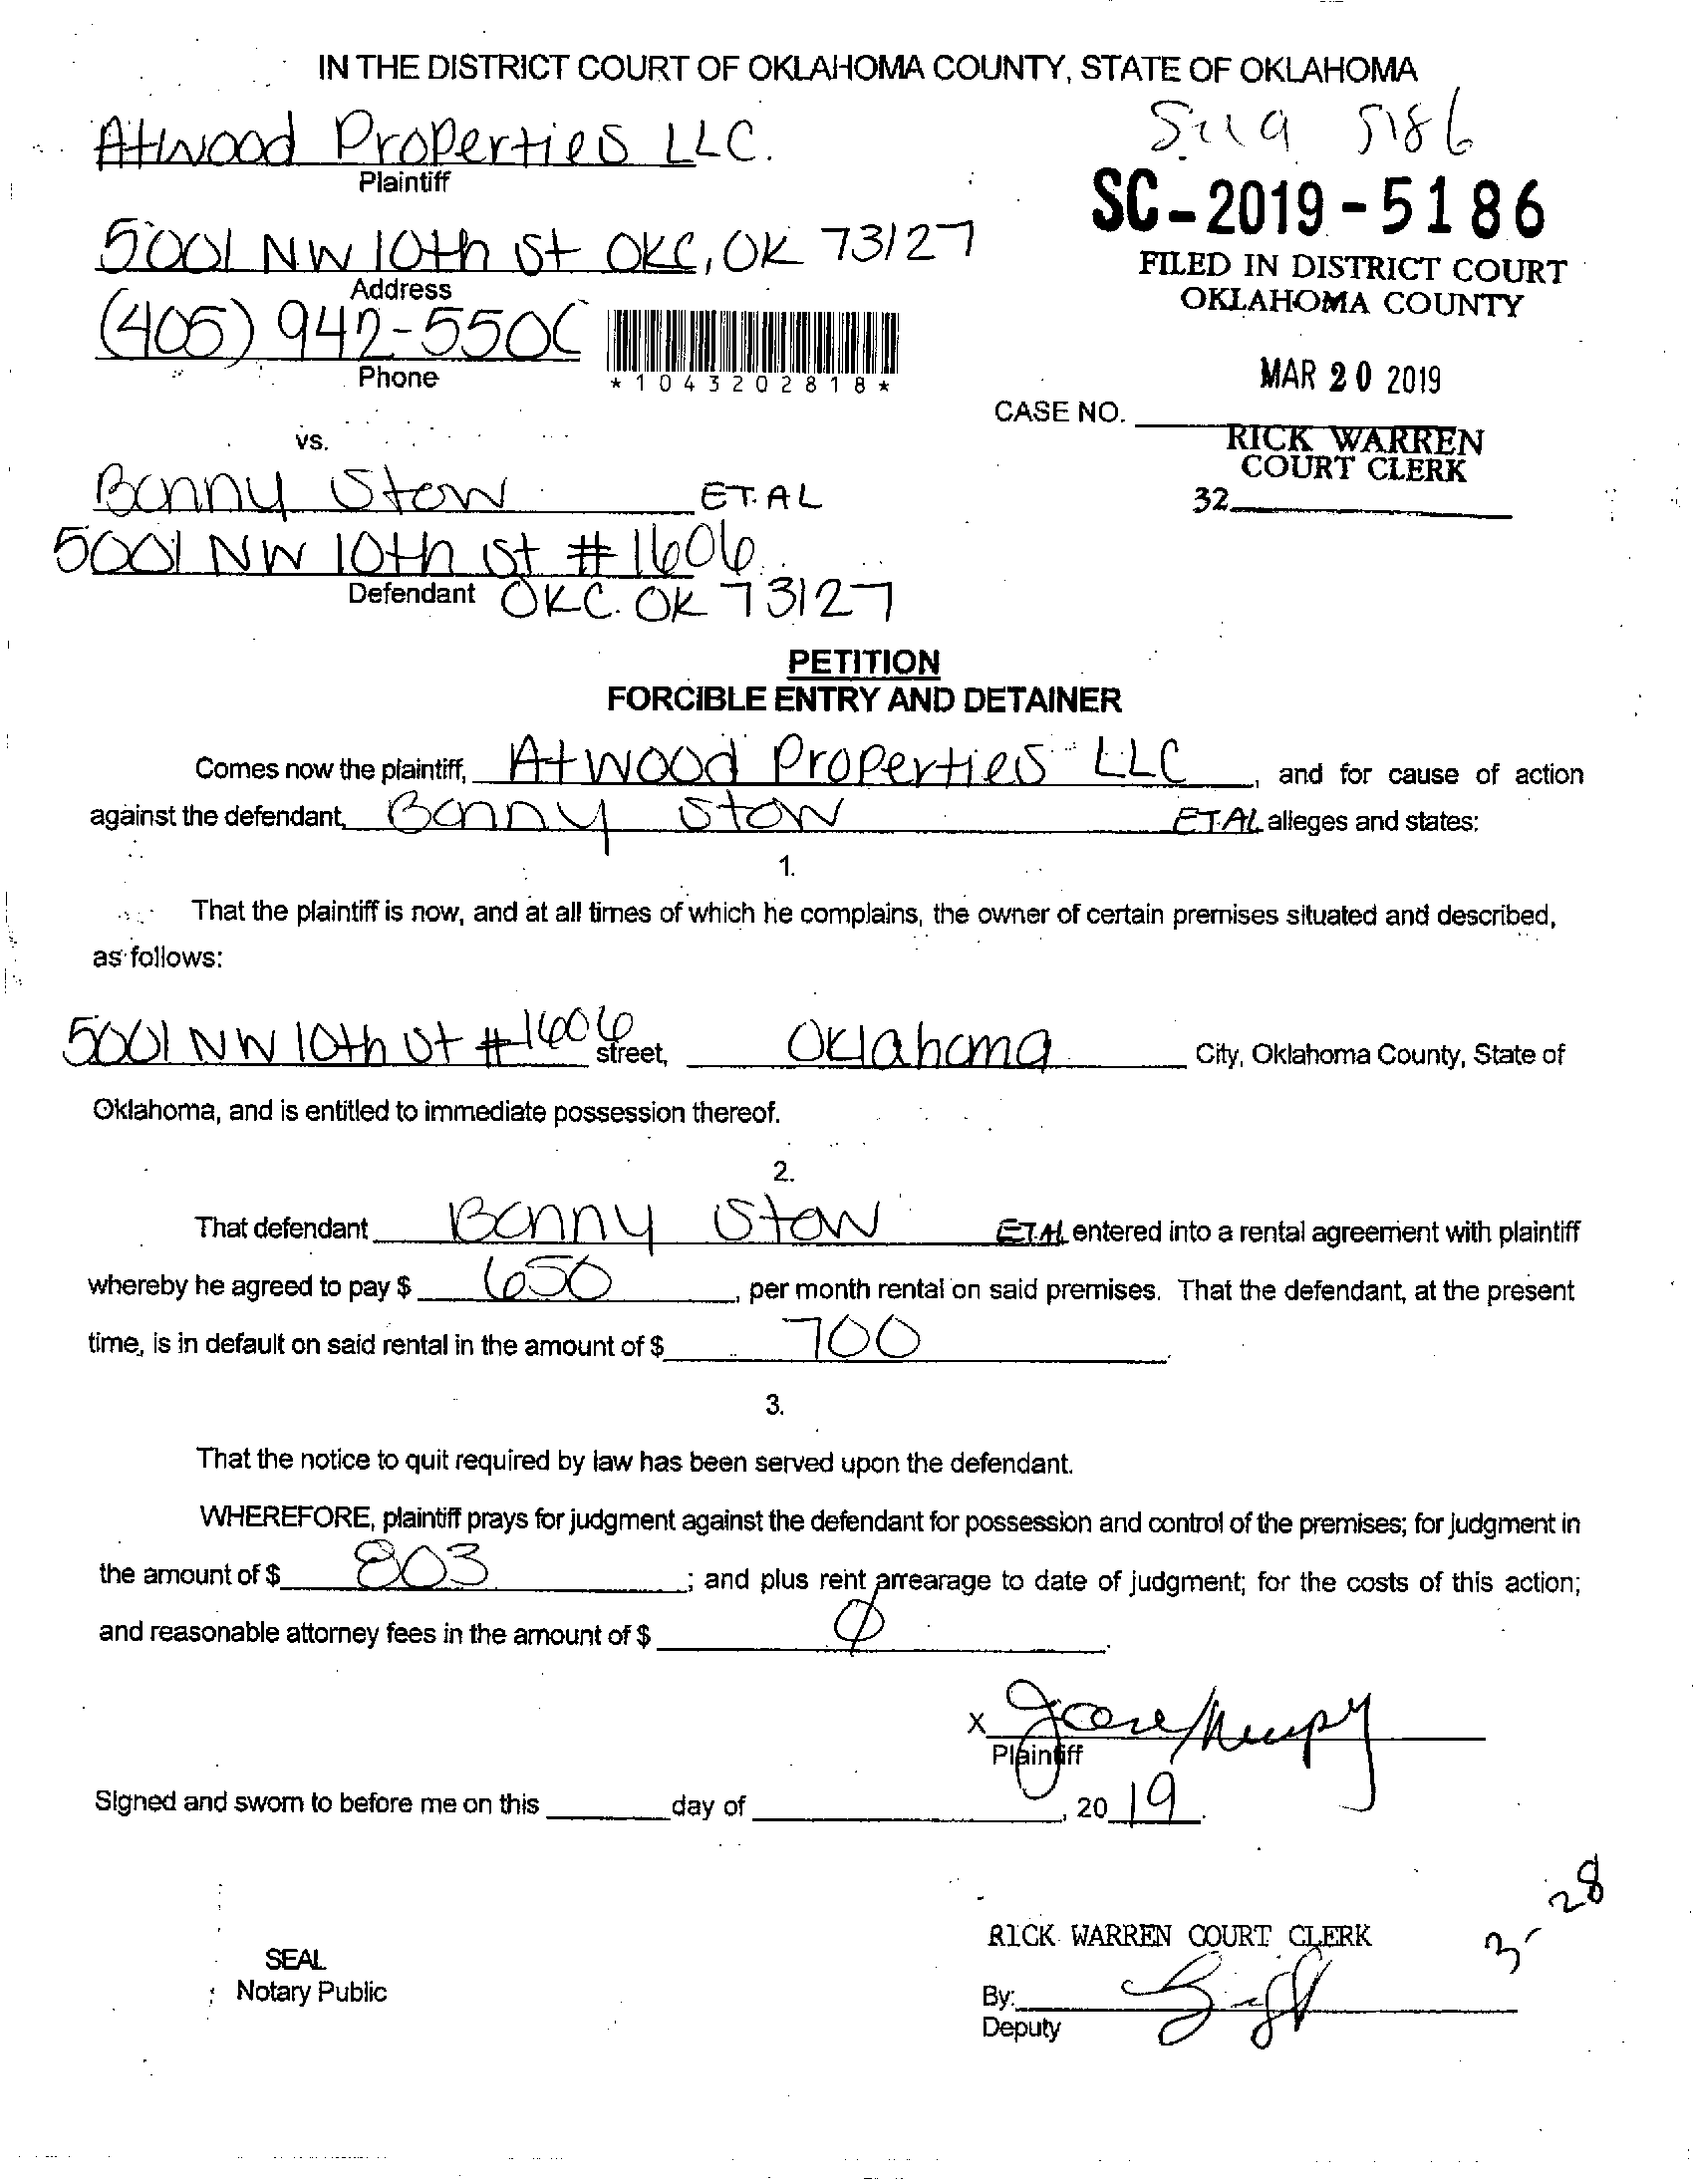 IN THE DISTRICT COURT OF OKLAHOMA COUNTY, STATE OF OKLAHOMA
Atwood Properties LLC.
Plaintiff
5186
SC-2019-5186
5001 NW 10th St OKC, OK 73127
Address
FILED IN DISTRICT COURT
OKLAHOMA COUNTY
(405) 942-550
Phone
*1043202818*
MAR 20 2019
CASE NO.
RICK WARREN
COURT CLERK
32
vs.
Bonny Stow ET. AL
5001 NW 10th St #1606
Defendant OKC. OK 73127
PETITION
FORCIBLE ENTRY AND DETAINER
Comes now the plaintiff, Atwood Properties LLC, and for cause of action
against the defendant, Bonny Stow ET.AL alleges and states:
1.
That the plaintiff is now, and at all times of which he complains, the owner of certain premises situated and described,
as follows:
5001 NW 10th St #1606 street, Oklahoma City, Oklahoma County, State of
Oklahoma, and is entitled to immediate possession thereof.
2.
That defendant Bonny Stow ET.AL entered into a rental agreement with plaintiff
whereby he agreed to pay $ 650, per month rental on said premises. That the defendant, at the present
time, is in default on said rental in the amount of $ 700.
3.
That the notice to quit required by law has been served upon the defendant.
WHEREFORE, plaintiff prays for judgment against the defendant for possession and control of the premises; for judgment in
the amount of $ 803; and plus rent arrearage to date of judgment; for the costs of this action;
and reasonable attorney fees in the amount of $ 0.
X
Plaintiff
Signed and sworn to before me on this day of , 2019.
3-28
RICK WARREN COURT CLERK
SEAL
Notary Public
By:
Deputy